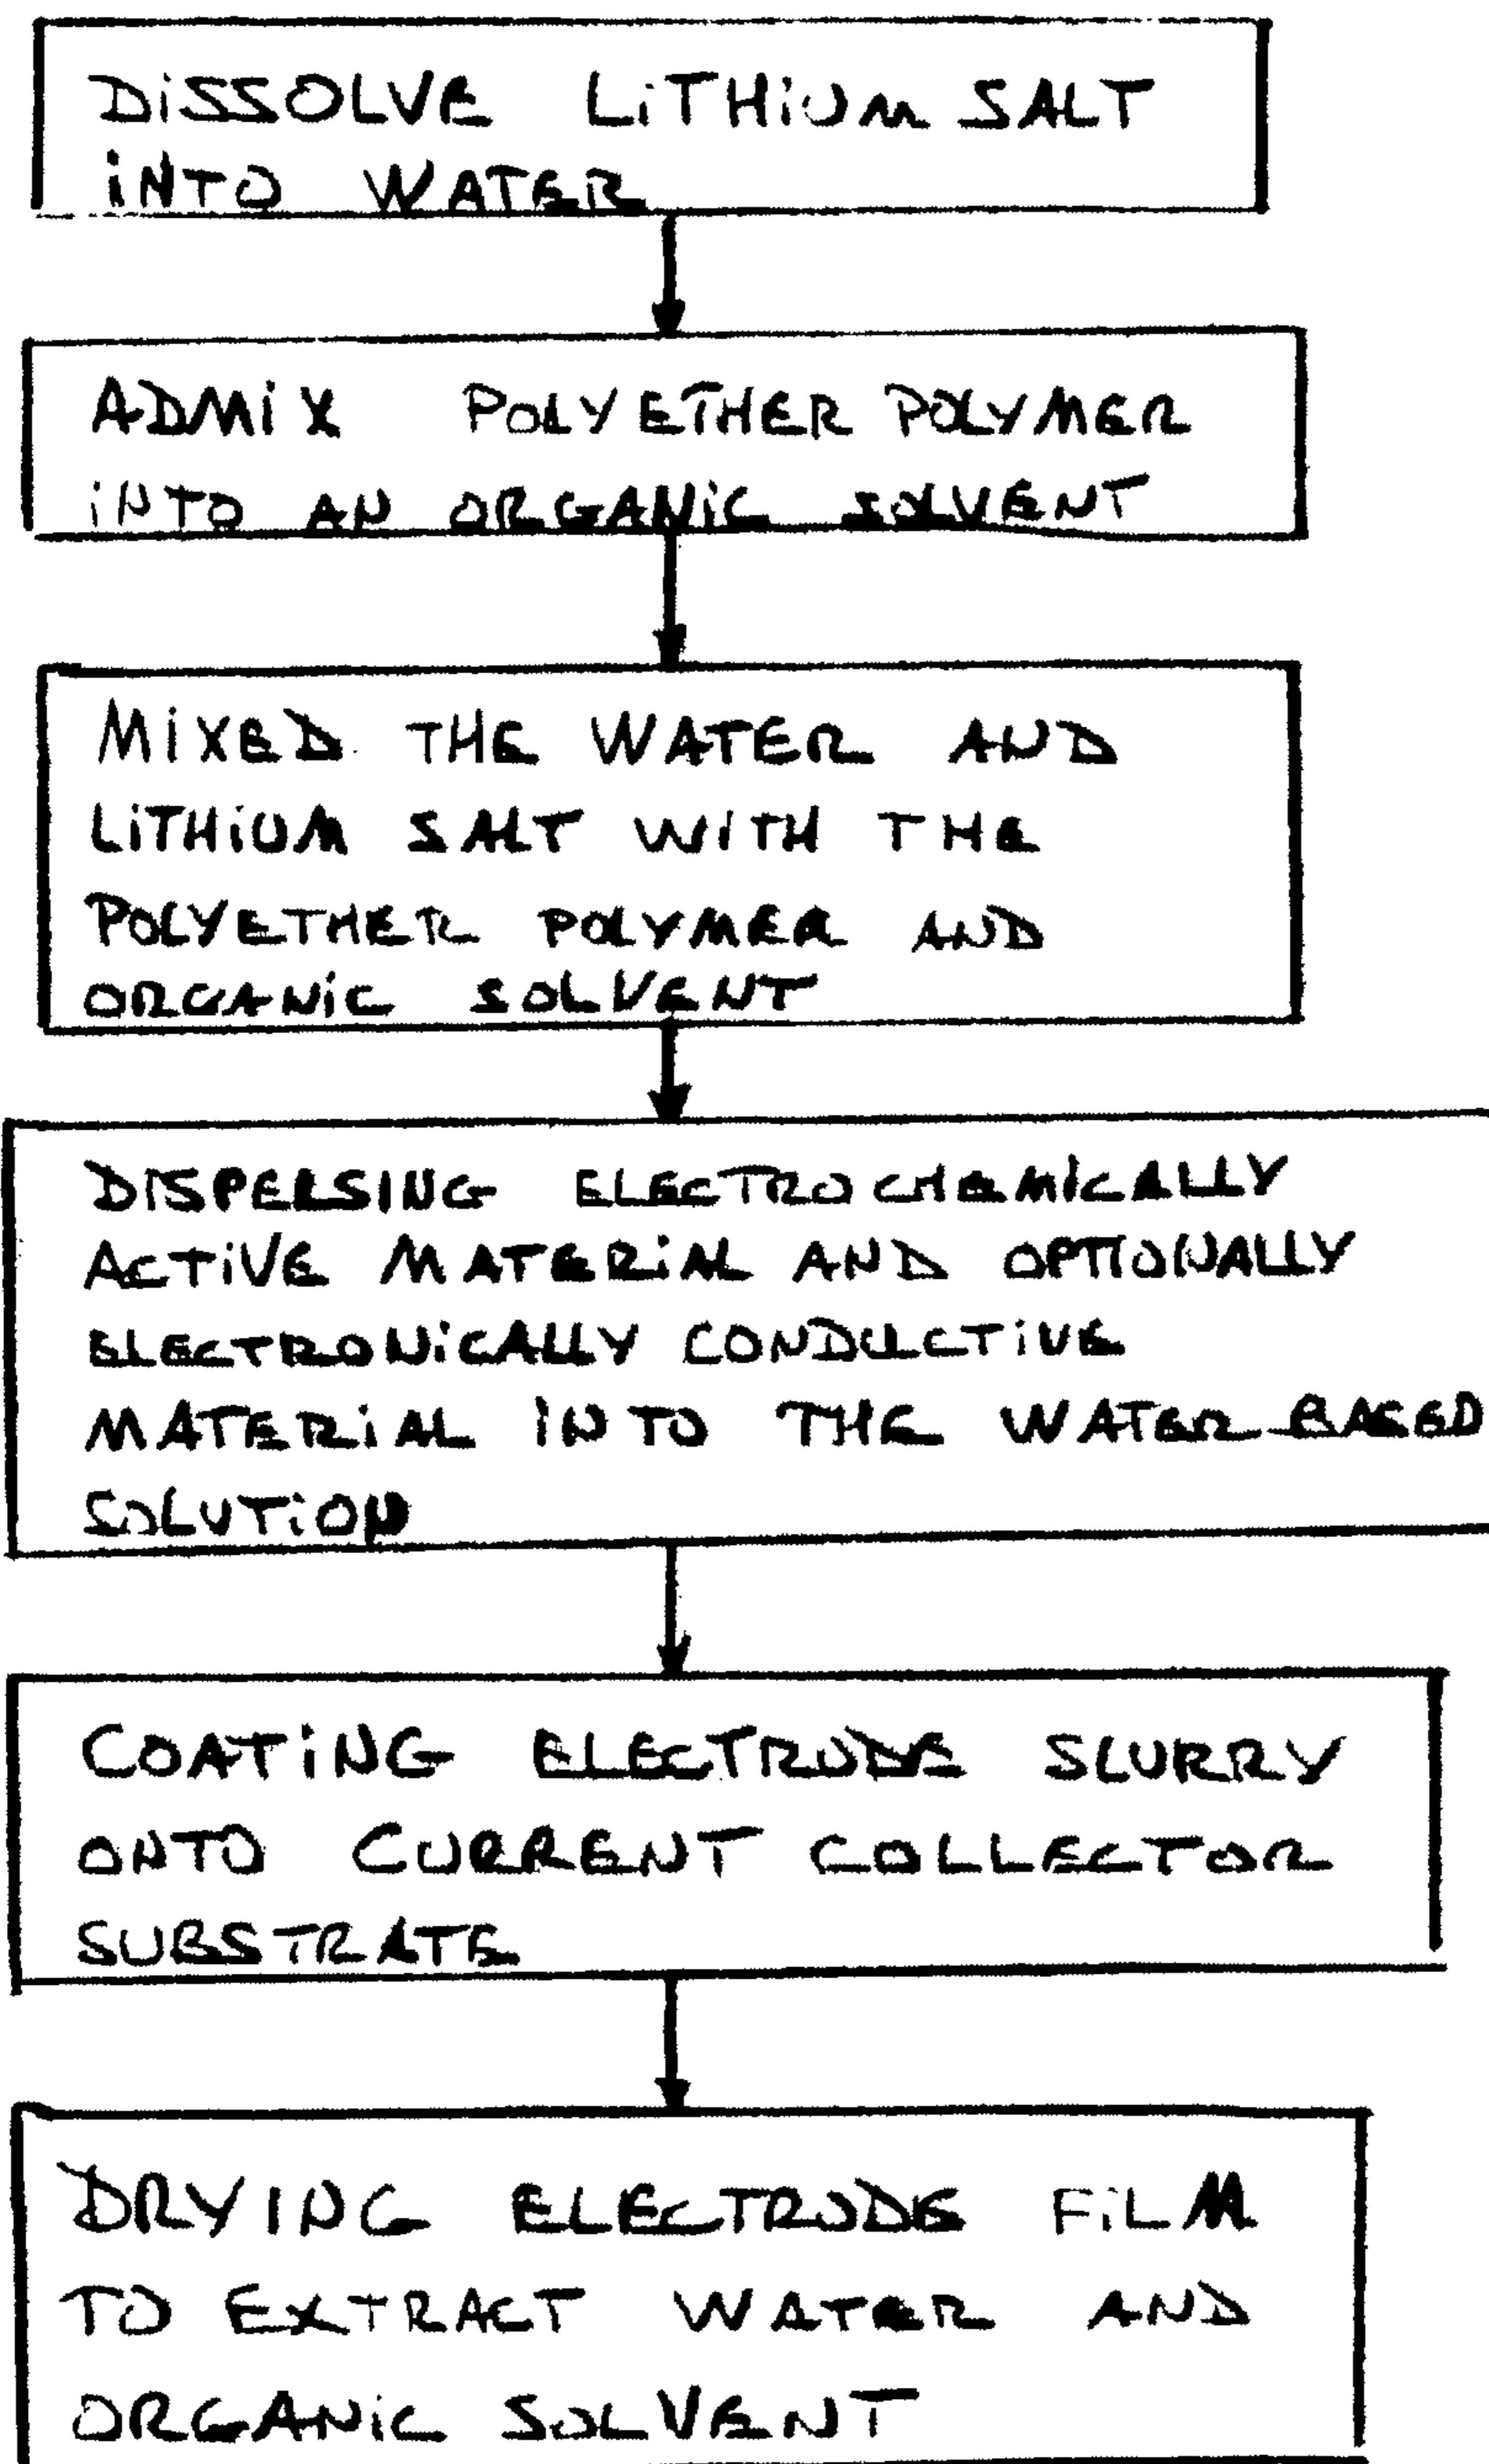 DISSOLVE LITHIUM SALT
INTO WATER
ADMIX POLYETHER POLYMER
INTO AN ORGANIC SOLVENT
MIXED THE WATER AND
LITHIUM SALT WITH THE
POLYETHER POLYMER AND
ORGANIC SOLVENT
DISPERSING ELECTROCHEMICALLY
ACTIVE MATERIAL AND OPTIONALLY
ELECTRONICALLY CONDUCTIVE
MATERIAL INTO THE WATER-BASED
SOLUTION
COATING ELECTRODE SLURRY
ONTO CURRENT COLLECTOR
SUBSTRATE
DRYING ELECTRODE FILM
TO EXTRACT WATER AND
ORGANIC SOLVENT